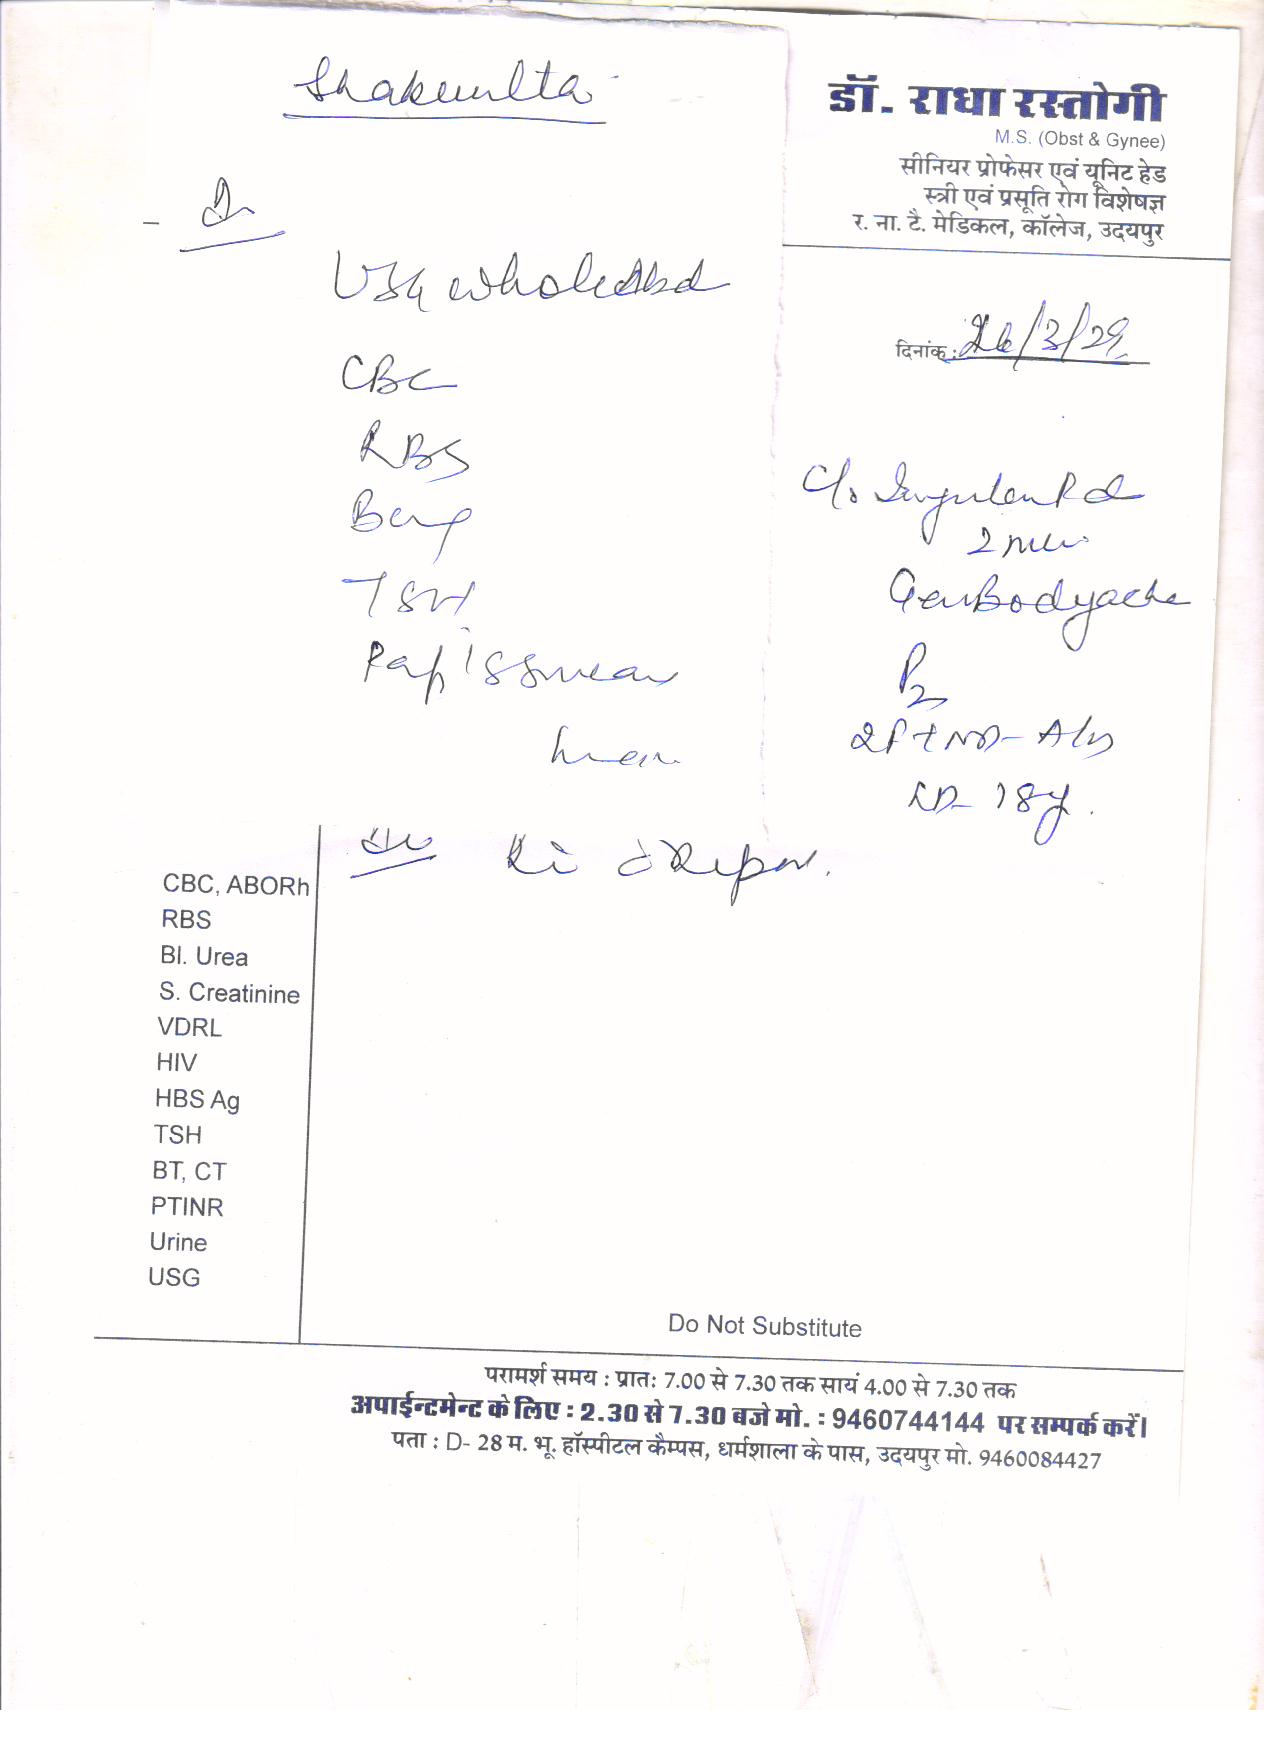 Shakuntla
डॉ. राधा रस्तोगी
M.S. (Obst & Gynee)
सीनियर प्रोफेसर एवं यूनिट हेड
स्त्री एवं प्रसूति रोग विशेषज्ञ
र. ना. टै. मेडिकल, कॉलेज, उदयपुर
USG whole Abd
दिनांक : 26/3/29
CBC
RBS
TSH
Pap's smear
C/o Irregular Pd
Gen Bodyache
P2
2FTND- A/W
LD- 18y.
CBC, ABORh
RBS
Bl. Urea
S. Creatinine
VDRL
HIV
HBS Ag
TSH
BT, CT
PTINR
Urine
USG
Do Not Substitute
परामर्श समय : प्रातः 7.00 से 7.30 तक सायं 4.00 से 7.30 तक
अपाईन्टमेन्ट के लिए : 2.30 से 7.30 बजे मो. : 9460744144 पर सम्पर्क करें।
पता : D- 28 म. भू. हॉस्पीटल कैम्पस, धर्मशाला के पास, उदयपुर मो. 9460084427